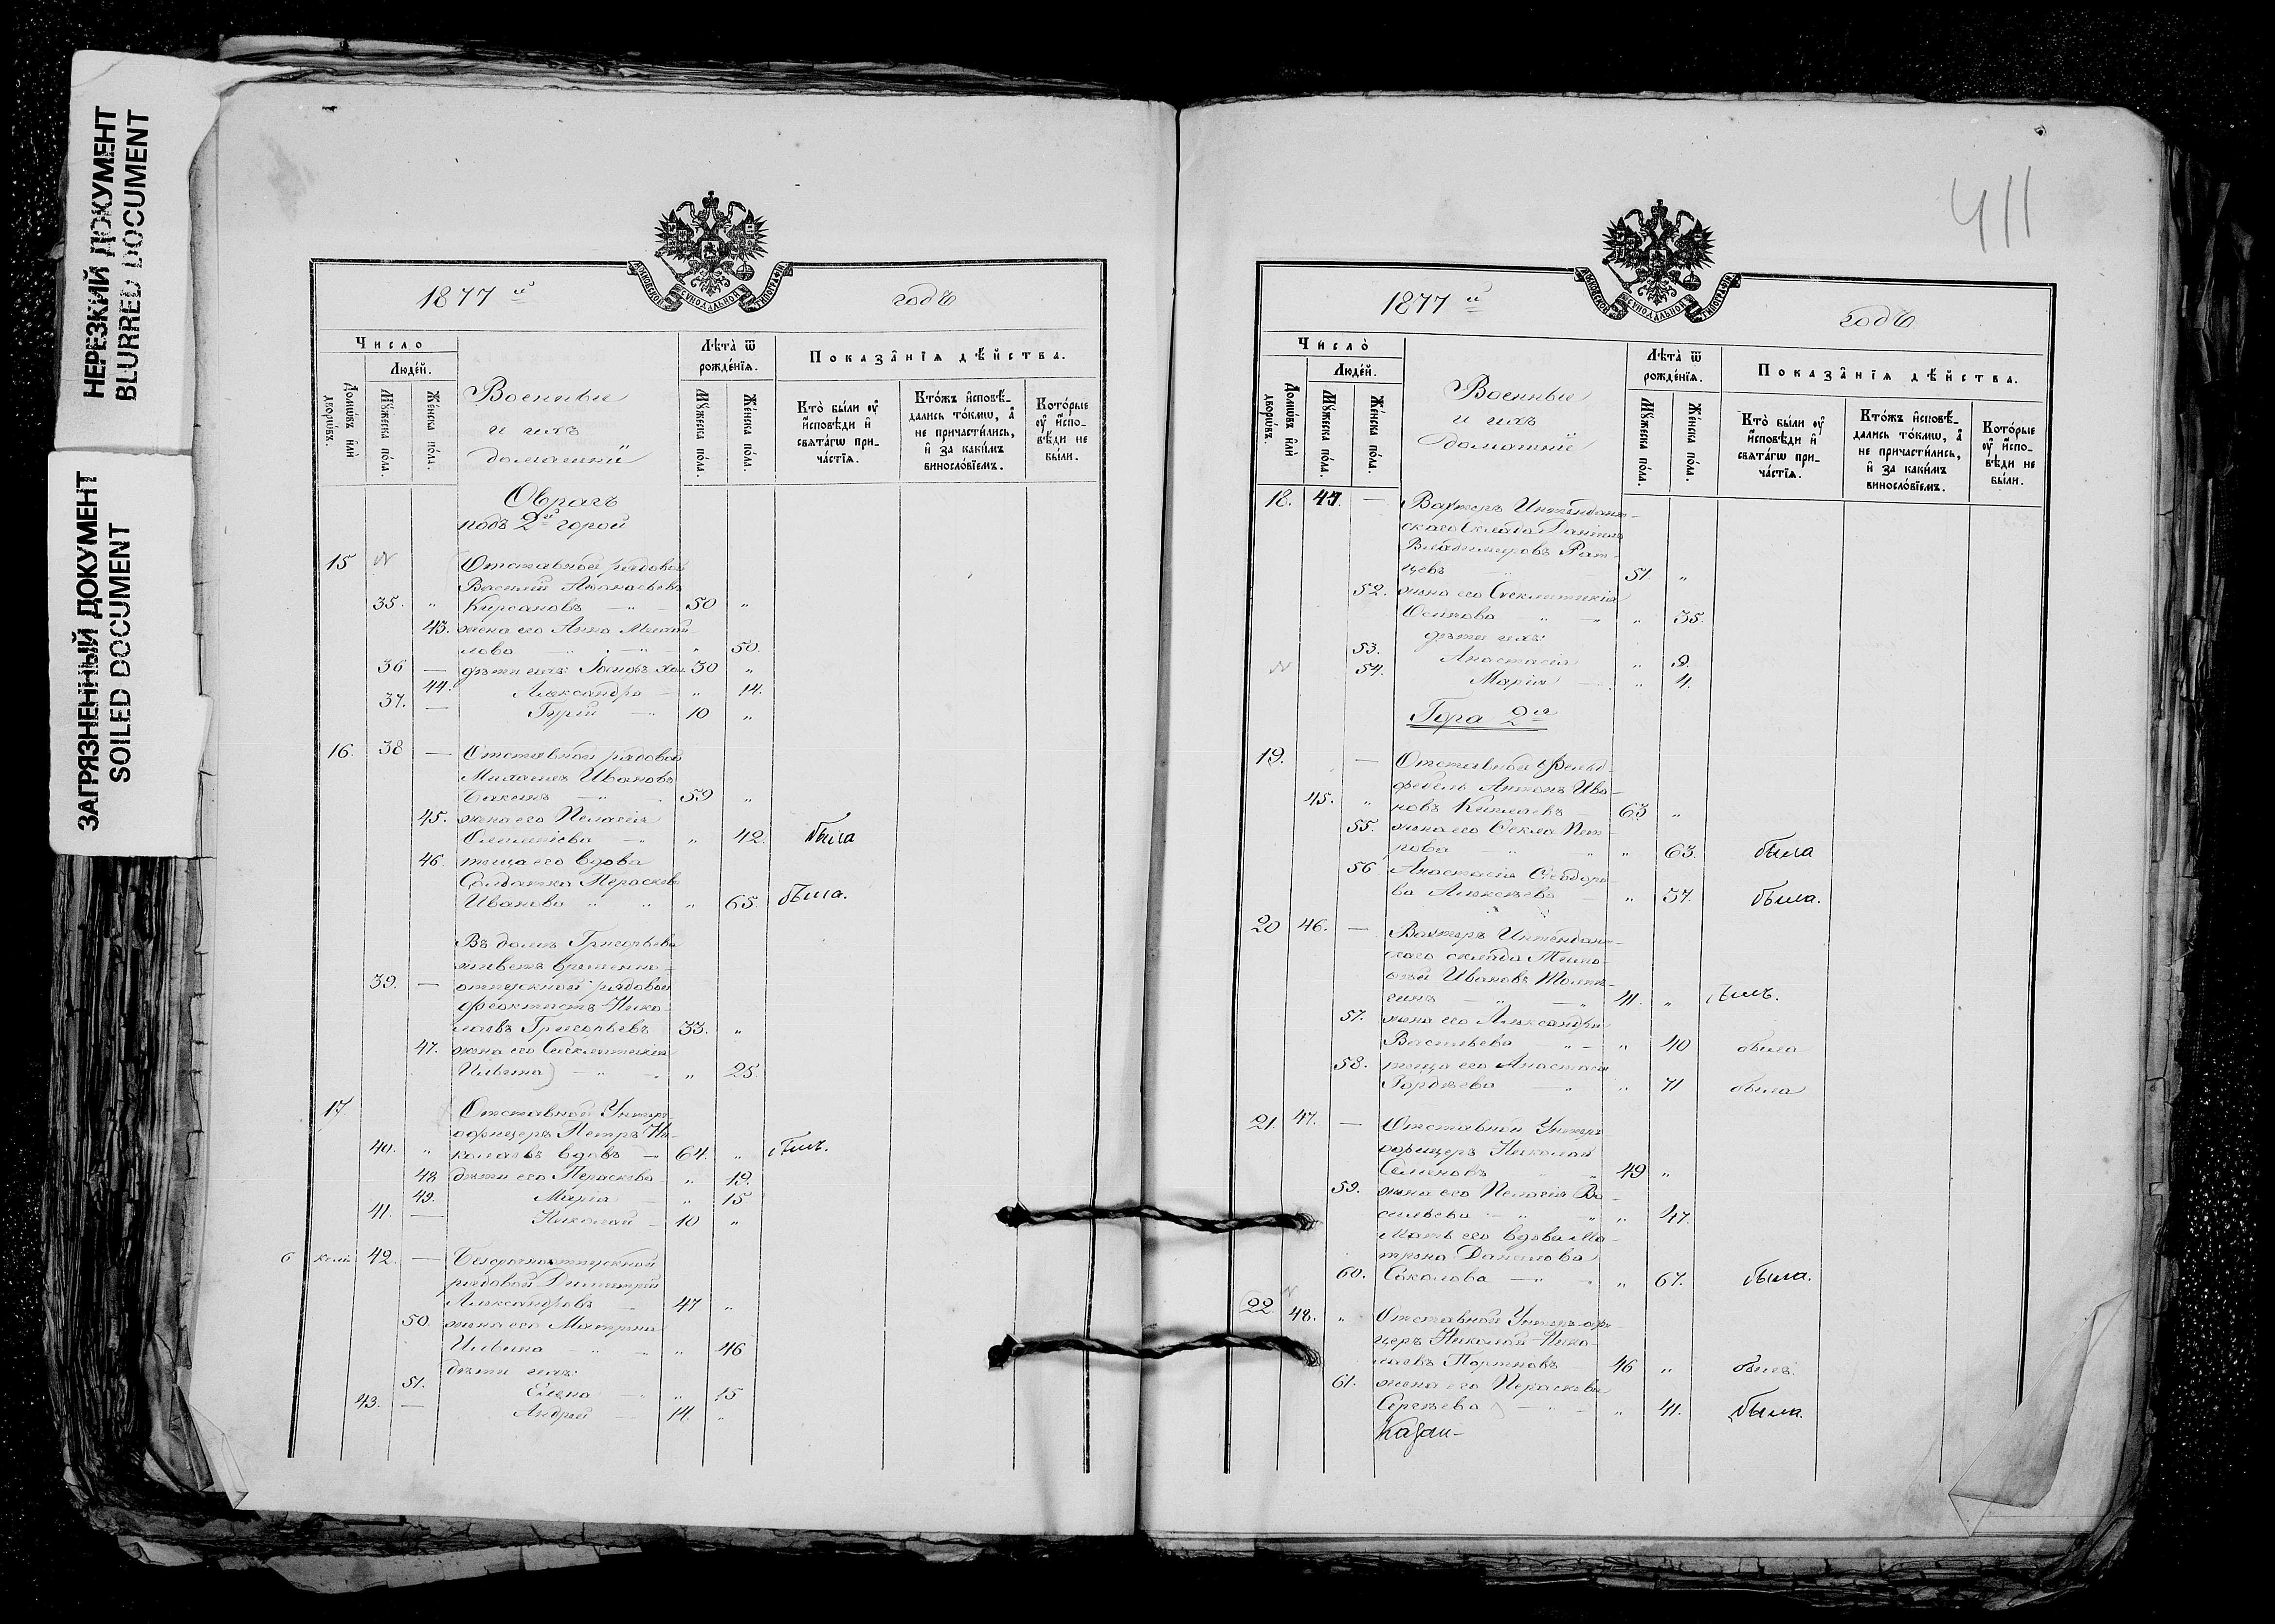 НЕРЕЗКИЙ ДОКУМЕНТ
BLURRED DOCUMENT
ЗАГРЯЗНЕННЫЙ ДОКУМЕНТ
SOILED DOCUMENT
МОСКОВСКОЙ СѴНОДАЛЬНОЙ ТИПОГРАФІИ
1877 й годъ
Число
Людей.
Домѡвъ или дворѡвъ.
Мꙋжеска пола.
Женска пола.
Военные
и ихъ
домашнiи
Лѣта ѿ рожденїѧ.
Мꙋжеска пола.
Женска пола.
Показанїѧ дѣйства.
Кто были оу исповѣди и свѧтагѡ при-
частїѧ.
Ктожъ исповѣ-
дались токмѡ, а не причастились, и за какимъ винословїемъ.
Которые оу испо-
вѣди не были.
Оврагъ
подъ 2й горой
15 Отставной рядовой
Василий Афанасьевъ
35. " Кирсановъ — " — 50 "
43. жена его Анна Михай-
лова — " 50.
36 — дѣти ихъ: Іосифъ хол. 30 "
44. Александра — " 14.
37. — Гурiй — 10 "
16. 38 — Отставной рядовой
Михаилъ Ивановъ
— 59 "
45. жена его Пелагiя
" 42. была
46. теща его вдова
Солдатка Параскева
Иванова " " 65. была.
Въ домѣ Григорьева
живетъ временно-
39. — отпускной рядовой
Феоктистъ Нико-
лаевъ Григорьевъ 33. "
47. жена его Синклитикiя
Ильина — " 25.
17 Отставной Унтеръ-
офицеръ Петръ Ни-
40. " колаевъ вдовъ — 64. " былъ.
48 дѣти его Параскева " 19.
49. Марiя — " 15
41. — Николай — 10 "
42. — Безсрочноотпускной
рядовой Димитрiй
Александровъ 47 "
50. жена его Матрона
Ильина — " " 46
дѣти ихъ:
51. Елена — " 15
43. — Андрей — 14. "
411
МОСКОВСКОЙ СѴНОДАЛЬНОЙ ТИПОГРАФІИ
1877 й годъ
Число
Людей.
Домѡвъ или дворѡвъ.
Мꙋжеска пола.
Женска пола.
Военные
и ихъ
домашнiи
Лѣта ѿ рожденїѧ.
Мꙋжеска пола.
Женска пола.
Показанїѧ дѣйства.
Кто были оу исповѣди и свѧтагѡ при-
частїѧ.
Ктожъ исповѣ-
дались токмѡ, а не причастились, и за какимъ винословїемъ.
Которые оу испо-
вѣди не были.
18. — Вахтеръ Интендант-
скаго Склада Данiилъ
Владимировъ
51 "
52. жена его Синклитикiя
Осипова " 35.
дѣти ихъ:
53. Анастасiя " 9.
54. Марiя — " 4.
Гора 2я
19. — Отставной Фельд-
фебель Антонъ Ива-
45. " новъ — 63 "
55. жена его Фекла Пет-
рова — " 63. была
56 Анастасiя Феодоро-
ва Алексѣева — " 37. была.
20 46. — Вахтеръ Интендант-
скаго склада Тимо-
фей Ивановъ
— " 41. " былъ.
57. жена его Александра
Васильева — " 40 была
58. теща его Анастасiя
Гордѣева — " 71 была
21. 47. — Отставной Унтеръ-
офицеръ Николай
Семеновъ 49 "
59. жена его Пелагiя Ва-
сильева — " 47.
Мать его вдова Ма-
трона Данилова
60. Соколова — " 67. была.
22. 48. " Отставной Унтеръ-офи-
церъ Николай Нико-
лаевъ Портновъ 46 " былъ.
61. жена его Параскева
Сергѣева — " 41. была.
Казан-